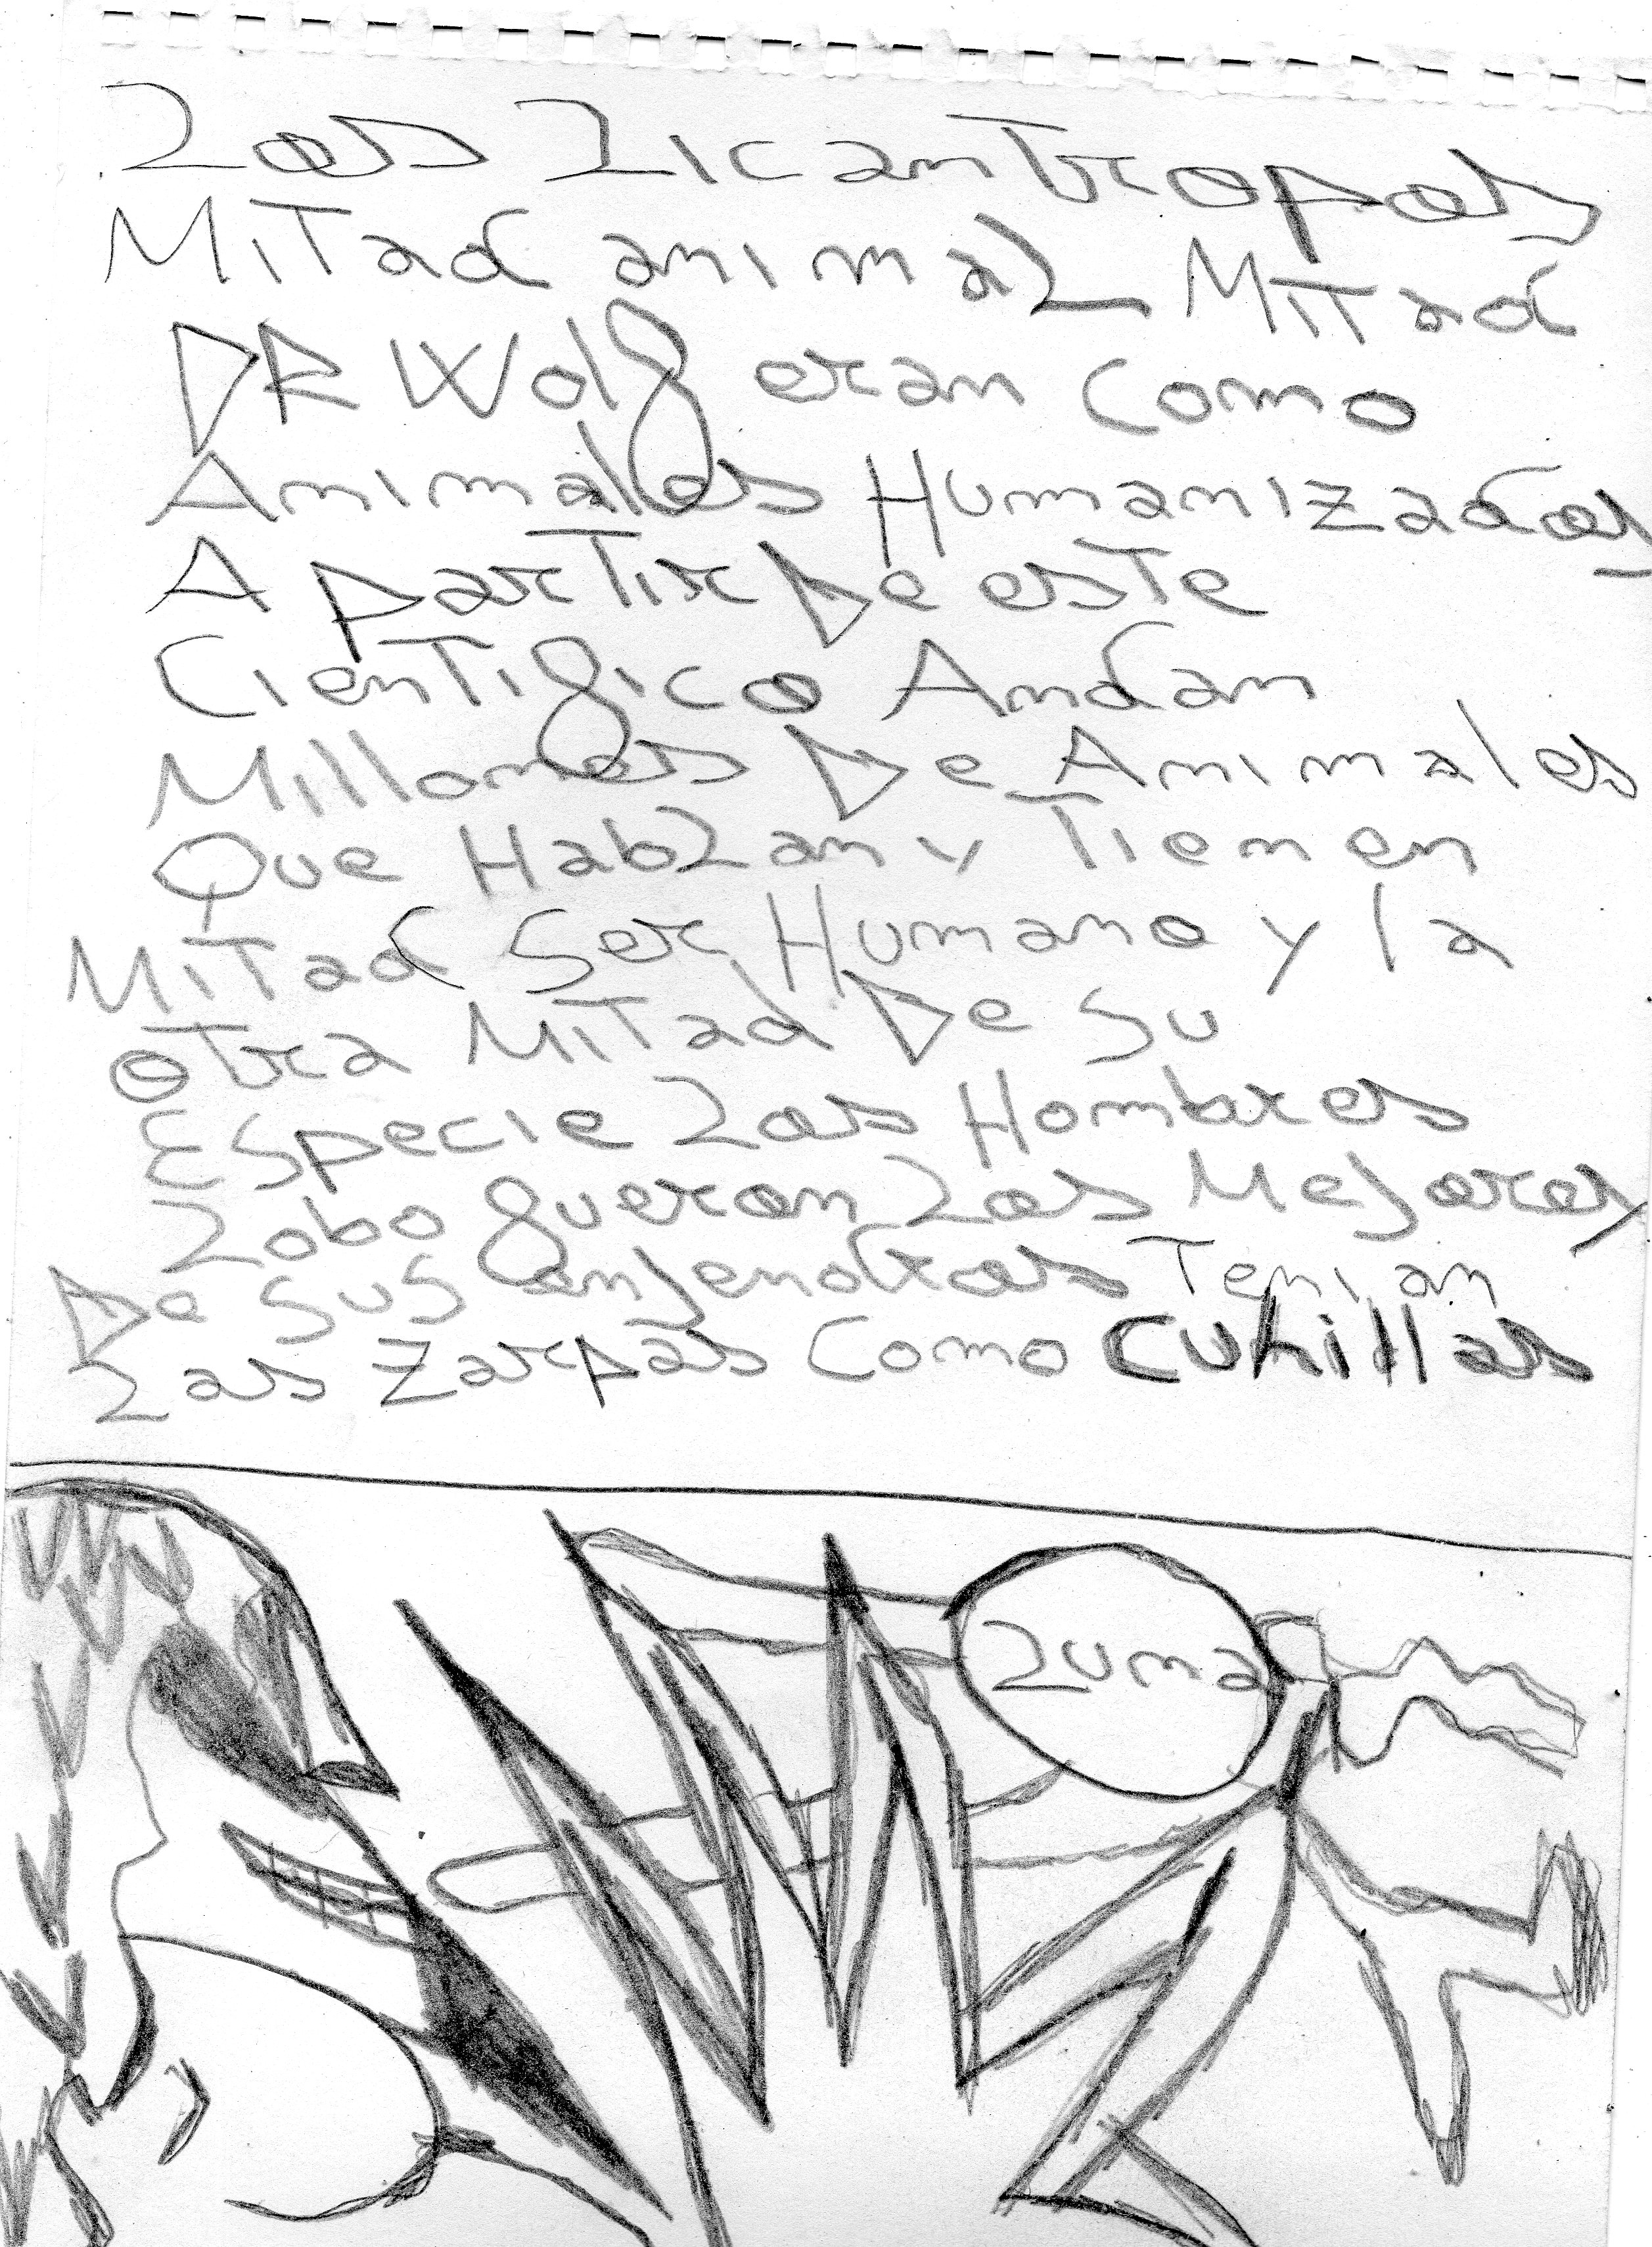 Los Licantropos
Mitad animal Mitad
DR Wolf eran Como
Animales Humanizados
A partir De este
Cientifico Andan
Millones De Animales
Que Hablan y Tienen
Mitad Ser Humano y la
otra Mitad De Su
Especie Los Hombres
Lobo fueron Los Mejores
De Sus Tenian
Las Zarpas Como Cuhillas
Luma